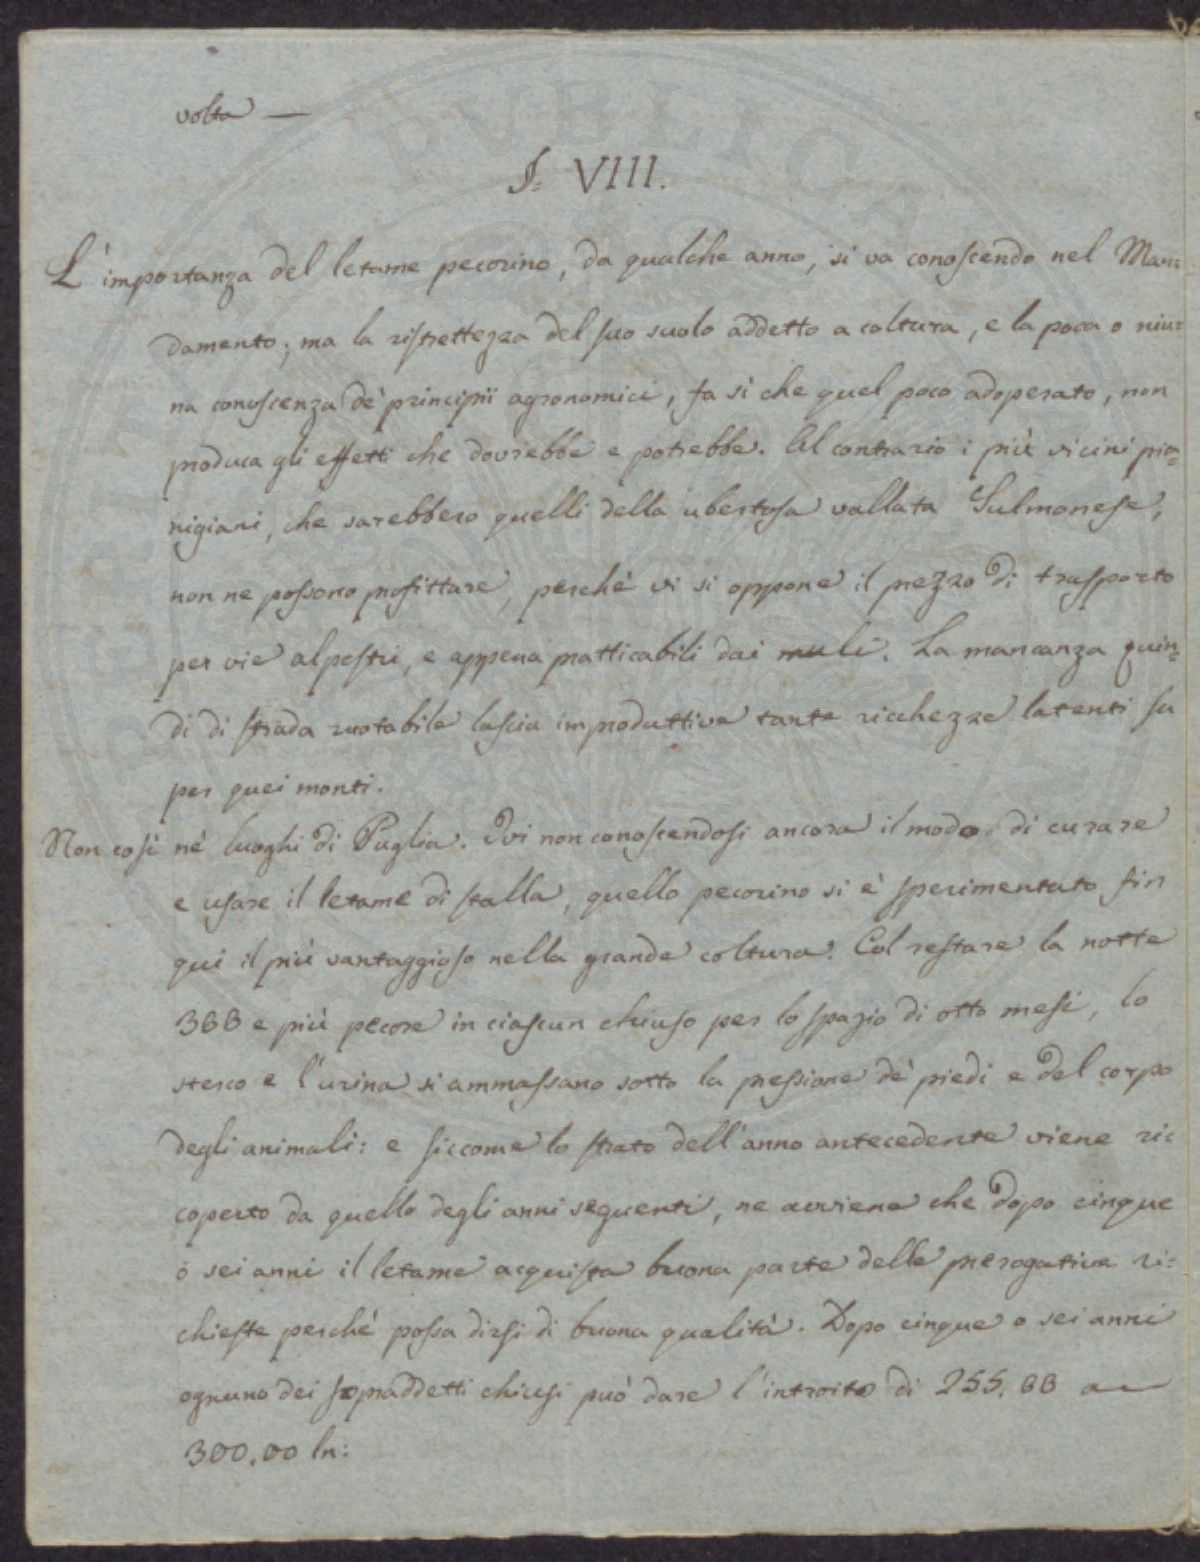 volta —
§. VIII.
L'importanza del letame pecorino, da qualche anno, si va conoscendo nel Man=
damento; ma la ristrettezza del suo suolo addetto a coltura, e la poca o niu=
na conoscenza de' principii agronomici, fa sì che quel poco adoperato, non
produca gli effetti che dovrebbe e potrebbe. Al contrario i più vicini pie=
nigiani, che sarebbero quelli della ubertosa vallata Sulmonese,
non ne possono profittare, perchè vi si oppone il prezzo di trasporto
per vie alpestri, e appena pratticabili dai muli. La mancanza quin=
di di strada ruotabile lascia improduttive tante ricchezze latenti su
per quei monti.
Non così né luoghi di Puglia. Ivi non conoscendosi ancora il modo di curare
e usare il letame di stalla, quello pecorino si è sperimentato fin
qui il più vantaggioso nella grande coltura. Col restare la notte
300 e più pecore in ciascun chiuso per lo spazio di otto mesi, lo
sterco e l'urina si ammassano sotto la pressione de' piedi e del corpo
degli animali: e siccome lo strato dell'anno antecedente viene ri=
coperto da quello degli anni seguenti, ne avviene che dopo cinque
o sei anni il letame acquista buona parte delle prerogative ri=
chieste perchè possa dirsi di buona qualità. Dopo cinque o sei anni
ognuno dei sopraddetti chiusi può dare l'introito di 255.00 a —
300.00 ln: